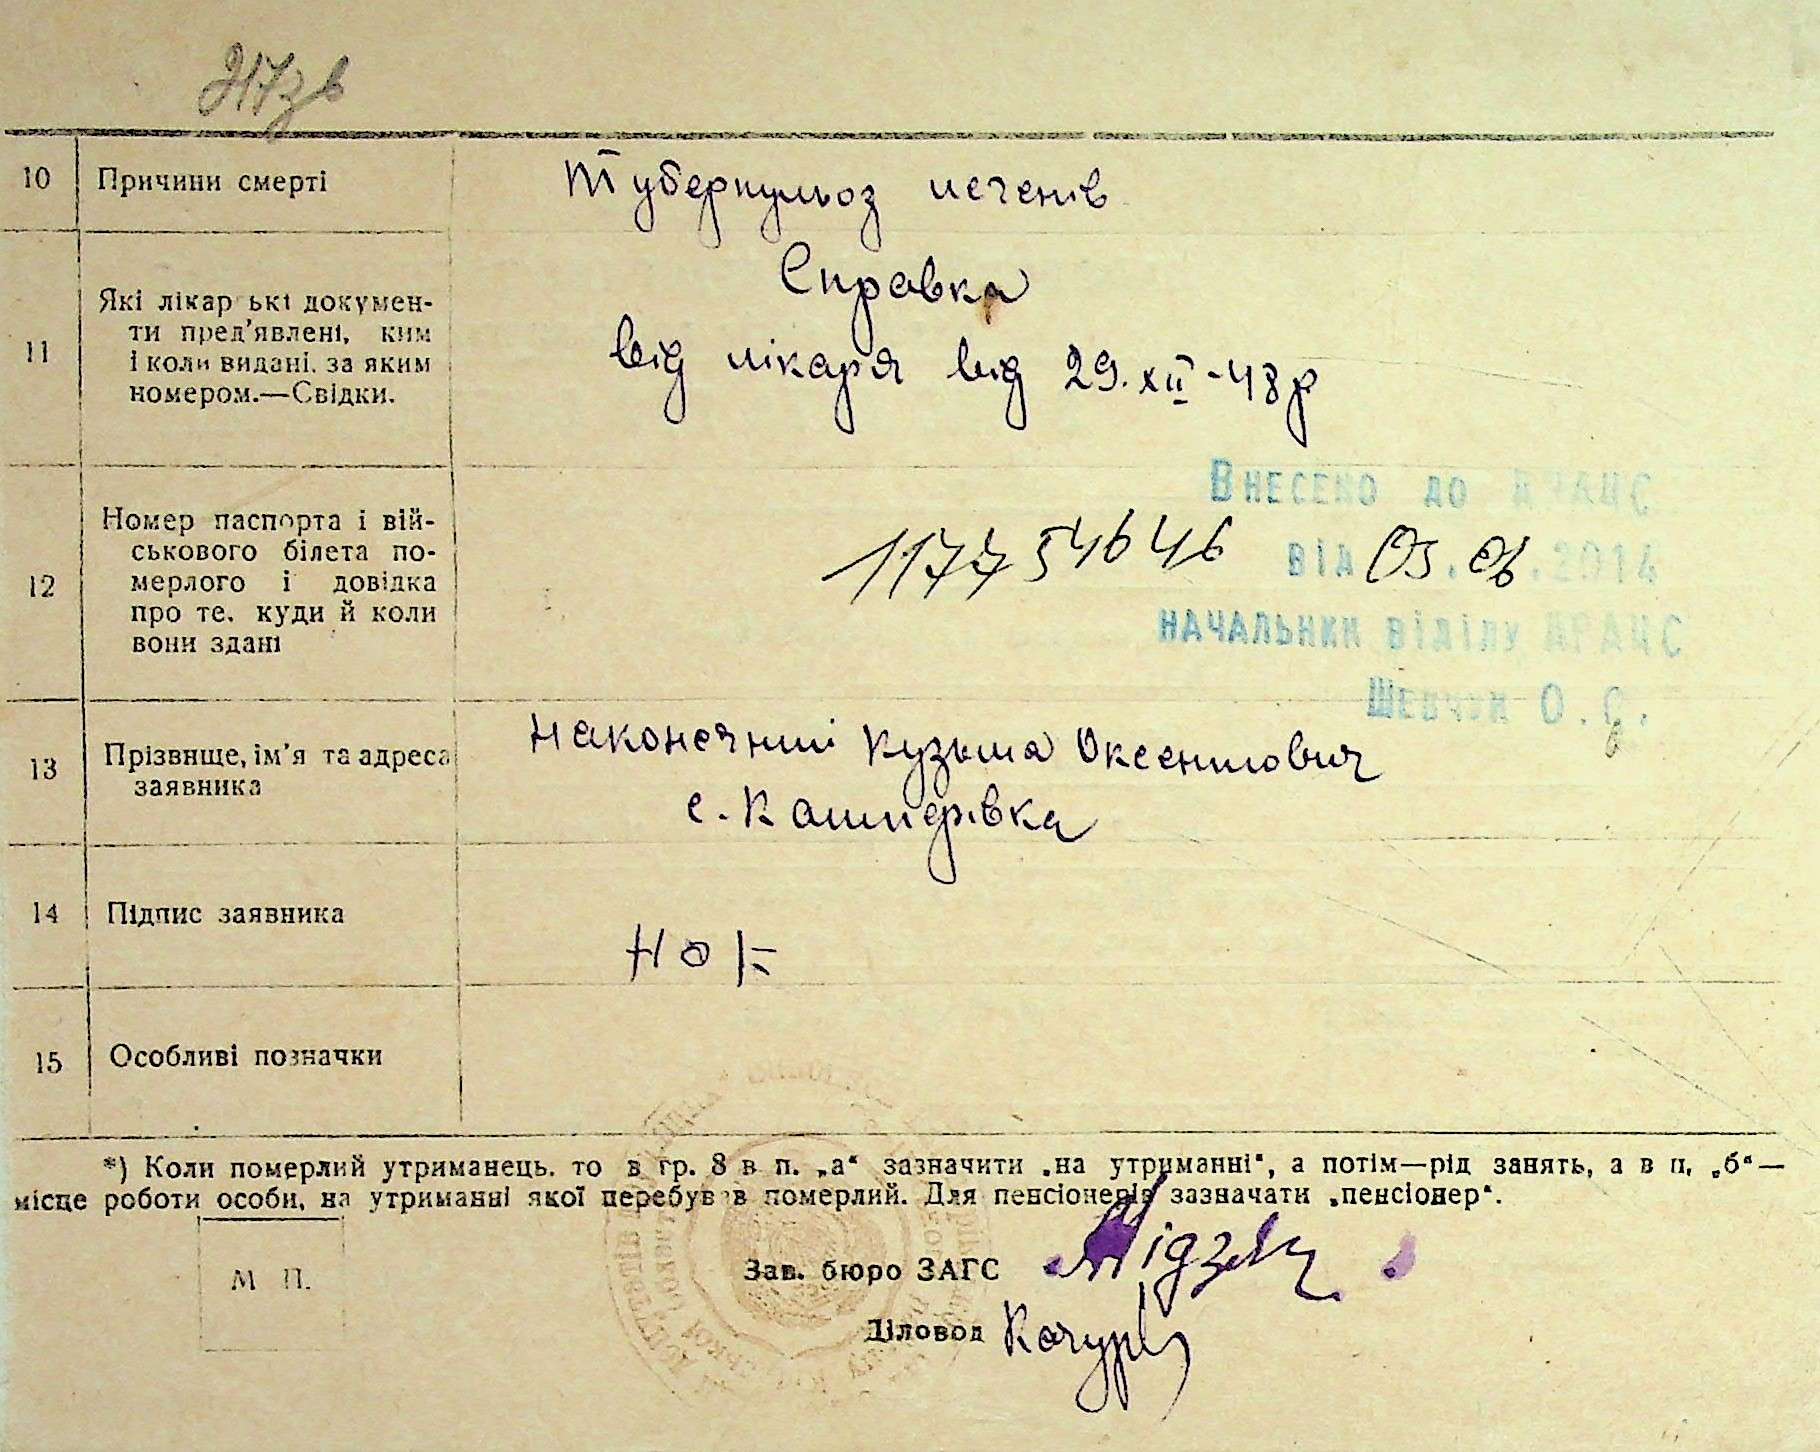 217зв
10 Причини смерті Туберкульоз печенів
11 Які лікар ькі докумен-
ти пред'явлені, ким
і коли видані, за яким
номером.—Свідки.
Справка
від лікаря від 29.XII-48р
12 Номер паспорта і вій-
ськового білета по-
мерлого і довідка
про те, куди й коли
вони здані
Внесено до ДРАЦС
117754646 від 03.06.2014
начальник відділу ДРАЦС
Шевчук О.С.
13 Прізвище, ім'я та адреса
заявника
Наконечний Кузьма Оксентович
с. Кашперівка
14 Підпис заявника
15 Особливі позначки
*) Коли померлий утриманець, то в гр. 8 в п. „а“ зазначити „на утриманні“, а потім—рід занять, а в п. „б“—
місце роботи особи, на утриманні якої перебував померлий. Для пенсіонерів зазначати „пенсіонер“.
М П.
Зав. бюро ЗАГС
Діловод